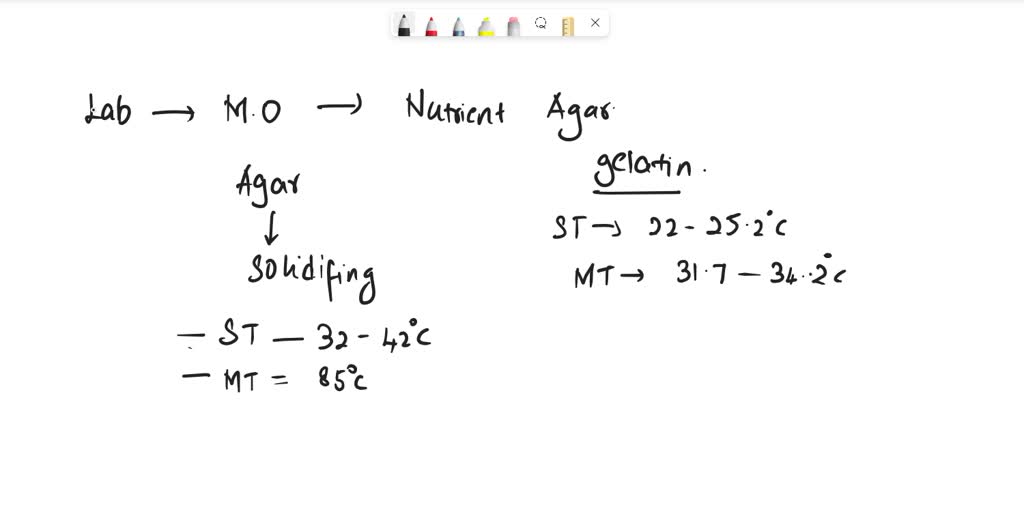 Lab → M.O → Nutrient Agar
Agar
↓
Solidifing
– ST – 32 - 42°C
– MT = 85°C
gelatin.
ST → 22 - 25.2°C
MT → 31.7 – 34.2°C